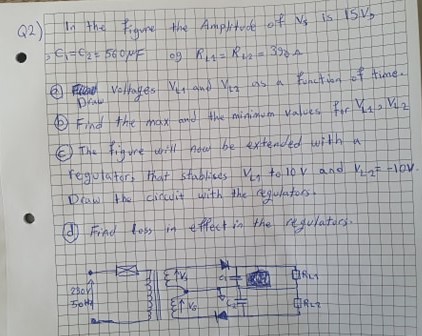 Q2) In the figure the Amplitude of Vs is 15V,
, C1=C2=560µF og RL1=RL2=390Ω
(a) Draw Voltages VL1 and VL2 as a function of time.
(b) Find the max and the minimum values for VL1, VL2
(c) The figure will now be extended with a
regulator, that stablises VL1 to 10V and VL2=-10V.
Draw the circuit with the regulators.
(d) Find loss in effect in the regulators.
230V
50Hz
Vs
Vs
C1
C2
RL1
RL2